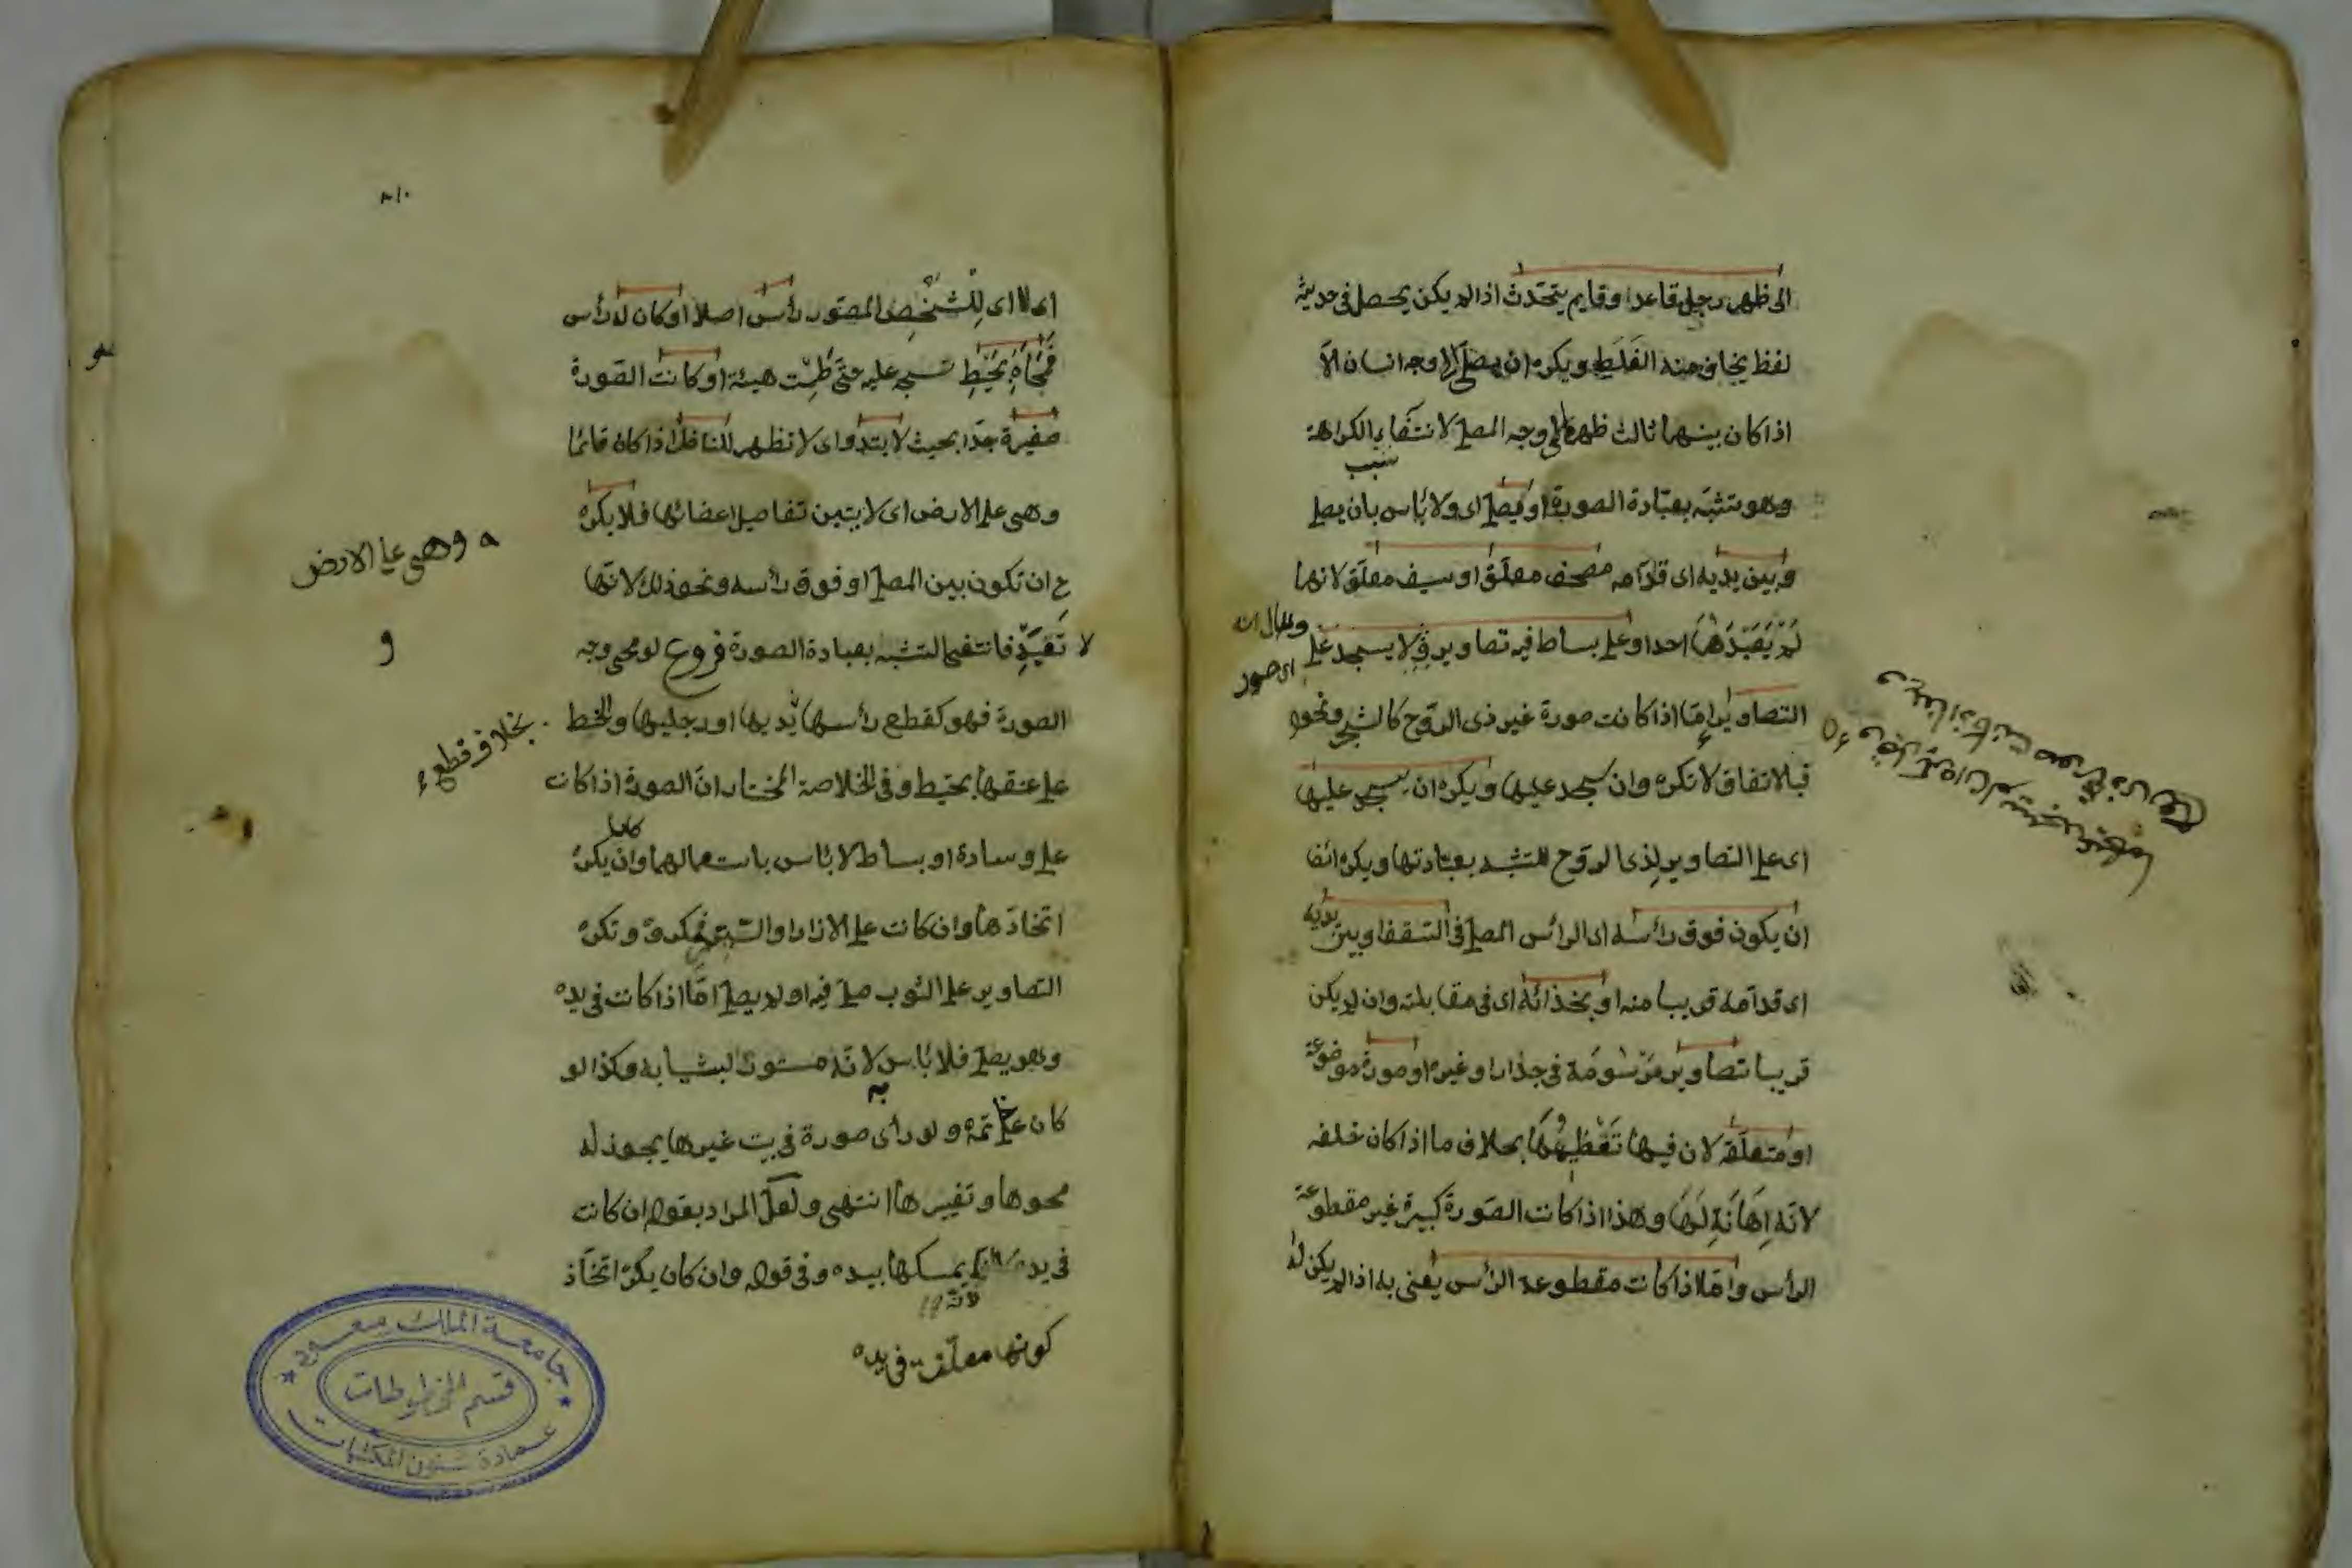 الى ظهر رجل قاعد او قايم يتحدث اذا لم يكن يحصل فى حديثه
لفظ يخاف منه الغلط ويكره ان يصلى الى وجه انسان الا
اذا كان بينهما ثالث ظهره الى وجه المصلى لانتفاء الكراهة
سبب
وهو تشبه بعبادة الصورة او يصلى اى ولا بأس بان يصلى
وبين يديه اى قدامه مصحف معلق او سيف معلق لانهما
لم يعبدهما احد او على بساط فيه تصاوير ولا يسجد على
والحال انه
اى صور
التصاوير اما اذا كانت صورة غير ذى الروح كالشجر ونحوه
فبالاتفاق لا تكره وان سجد عليها ويكره ان يسجد عليها
اى على التصاوير لذى الروح للتشبه بعبادتها ويكره ايضا
ان يكون فوق رأسه اى الرأس المصلى فى السقف او بين يديه
اى قدامه قريبا منه او بحذائه اى فى مقابلته وان لم يكن
قريبا تصاوير مرسومة فى جدار او غيره او صورة موضوعة
او متعلقة لان فيها تعظيمها بخلاف ما اذا كان خلفه
لانه اهانة لها وهذا اذا كانت الصورة كبيرة غير مقطوعة
الرأس واما اذا كانت مقطوعة الرأس يعنى به اذا لم يكن له
٨١٠
اى لا اى للشخص المصور رأس اصلا او كان له رأس
فمحاه بخيط نسجه عليه حتى طمت هيئة او كانت الصورة
صغيرة جدا بحيث لا تبدو اى لا تظهر للناظر اذا كان قائما
وهى على الارض اى لا يتبين تفاصيل اعضائها فلا يكره
وهى على الارض
ح ان تكون بين المصلى او فوق رأسه ونحو ذلك لانها
لا تعبد فانتفى التشبه بعبادة الصورة فروع لو محى وجه
و
الصورة فهو كقطع رأسها يديها او رجليها والخط
بخلاف قطع
على عنقها بخيط وفى الخلاصة المختار ان الصورة اذا كانت
على وسادة او بساط لا بأس باستعمالهما وان يكره
كان
اتخاذها وان كانت على الازار او الستر فمكروه وتكره
التصاوير على الثوب صلى فيه او لم يصل اما اذا كانت فى يده
وهو يصلى فلا بأس لانه مستور بثيابه وكذا لو
به
كان على خاتمه ولو رأى صورة فى بيت غيرها يجوز له
محوها وتغييرها انتهى ولعل المراد بقوله ان كانت
فى يده يمسكها بيده وفى قوله وان كان يكره اتخاذ
لانه
كونها معلقة فى يده
جامعة الملك سعود
قسم المخطوطات
عمادة شئون المكتبات